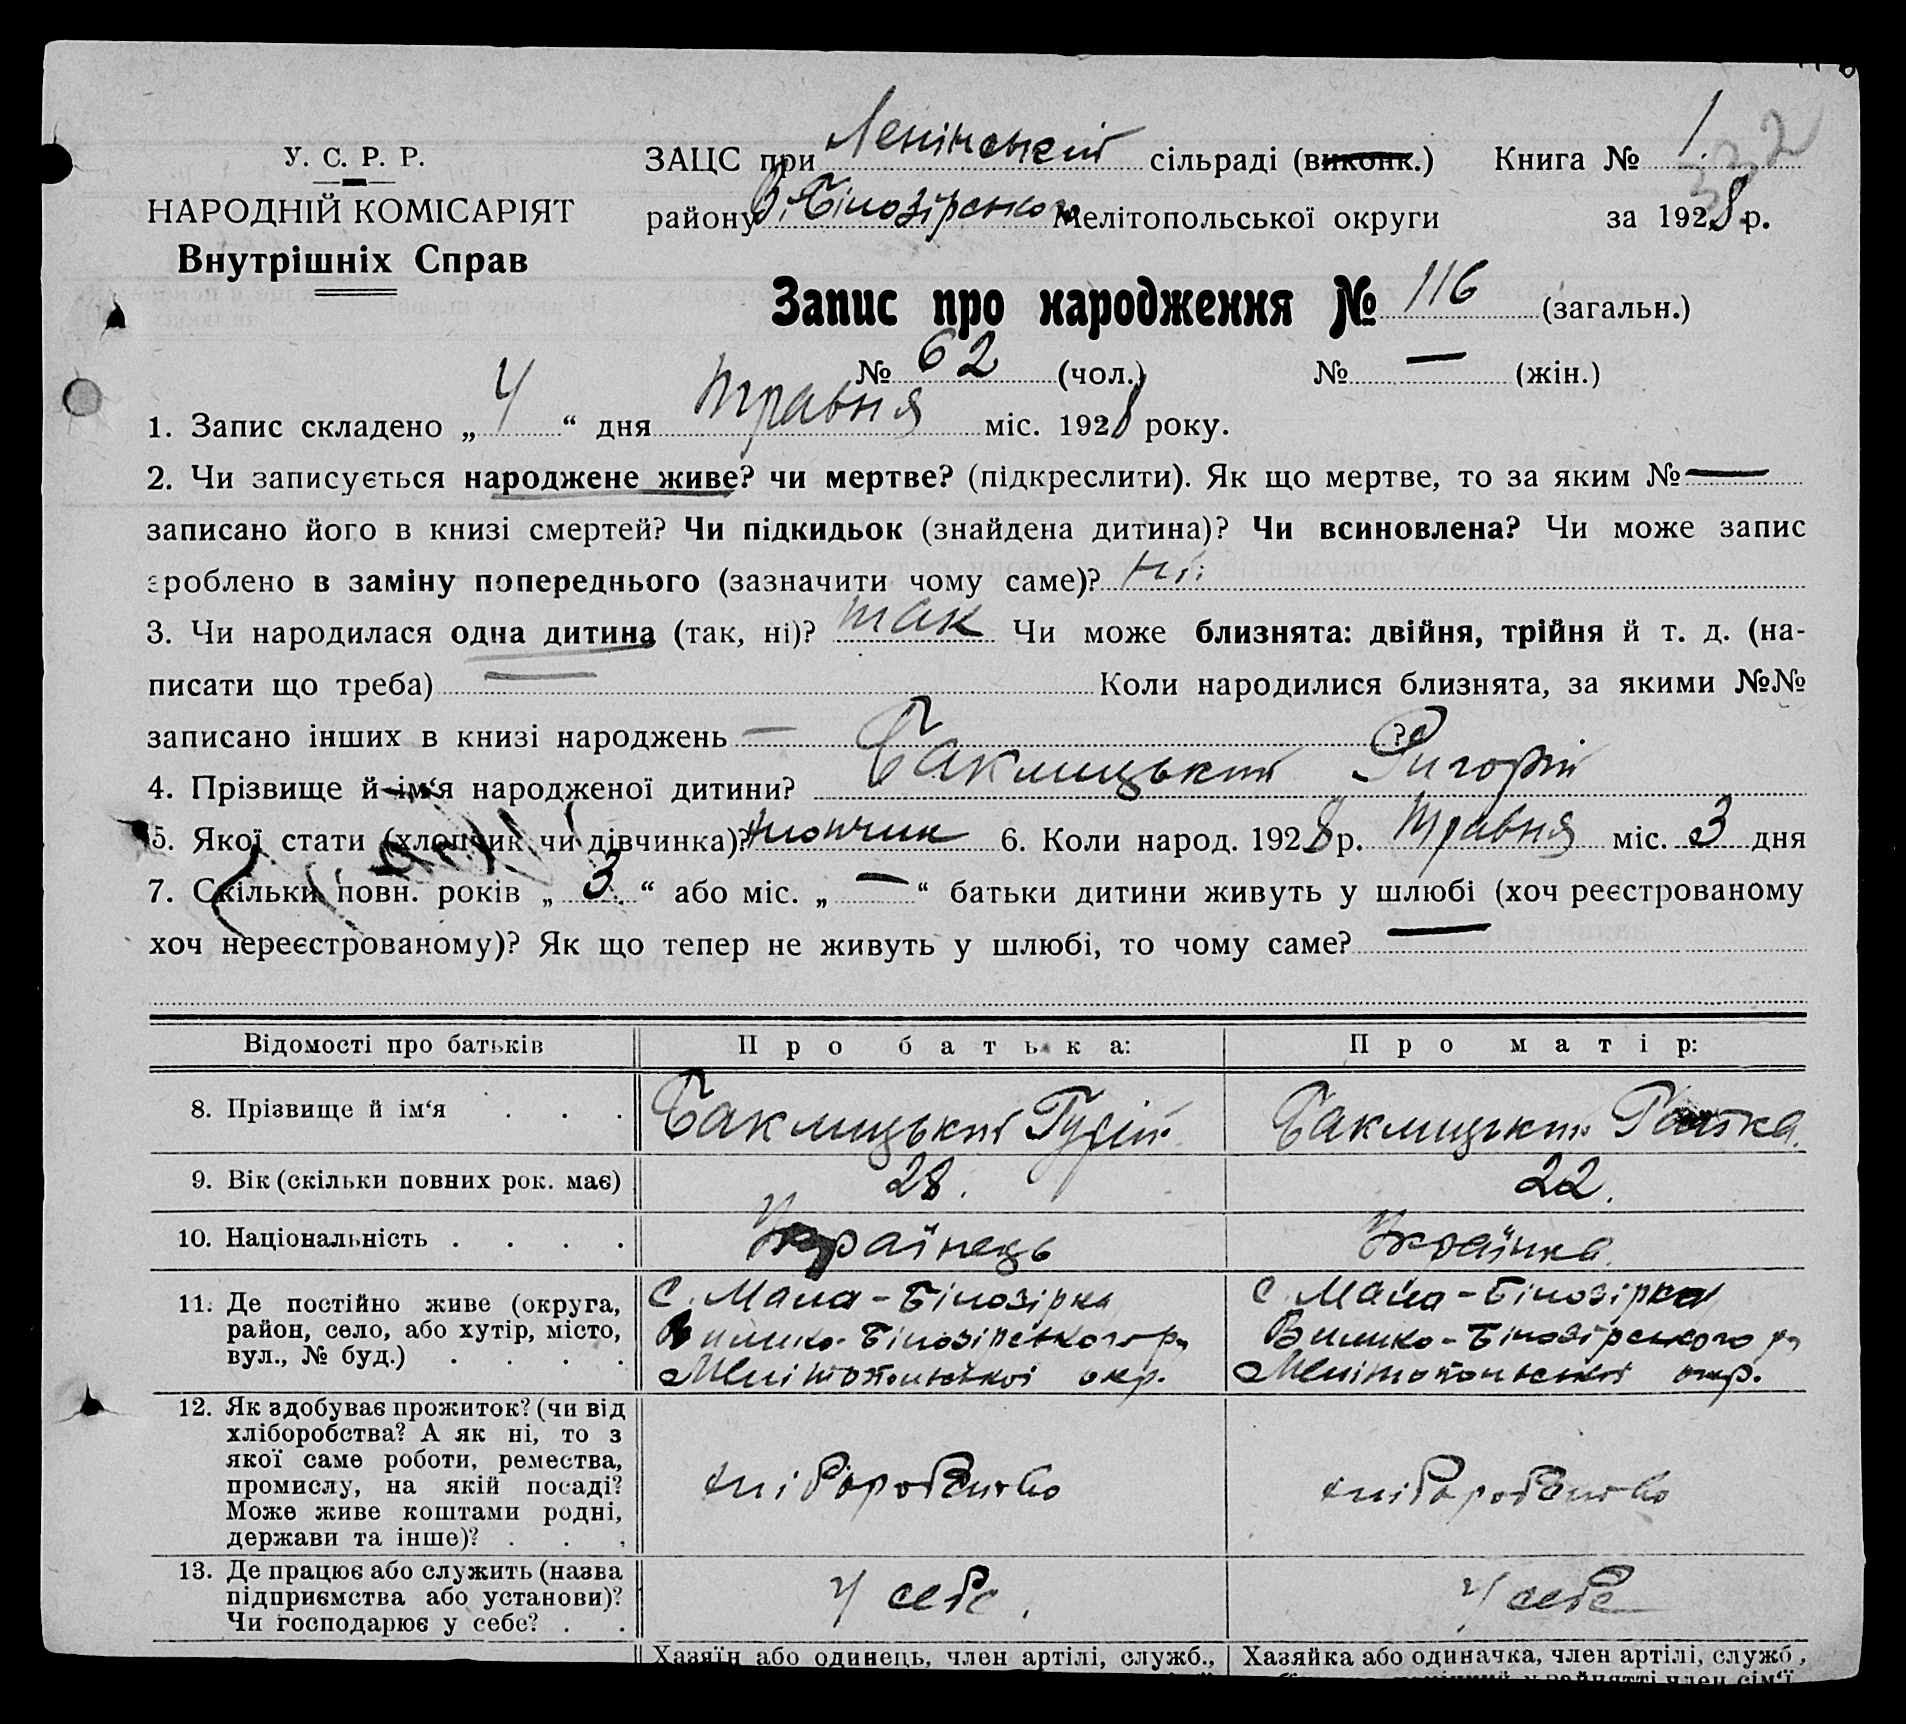 332
У. С. Р. Р.
НАРОДНІЙ КОМІСАРІЯТ
Внутрішніх Справ
ЗАЦС при Ленінській сільраді (виконк.) Книга № 1.
району В. Білозірського Мелітопольської округи за 1928 р.
Запис про народження № 116 (загальн.)
№ 62 (чол.) № — (жін.)
1. Запис складено „ 4 “ дня травня міс. 1928 року.
2. Чи записується народжене живе? чи мертве? (підкреслити). Як що мертве, то за яким № —
записано його в книзі смертей? Чи підкидьок (знайдена дитина)? Чи всиновлена? Чи може запис
зроблено в заміну попереднього (зазначити чому саме)? Ні.
3. Чи народилася одна дитина (так, ні)? так Чи може близнята: двійня, трійня й т. д. (на-
писати що треба) — Коли народилися близнята, за якими №№
записано інших в книзі народжень — ?
4. Прізвище й ім‘я народженої дитини? Баклицький Григорій
5. Якої стати (хлопчик чи дівчинка)? хлопчик 6. Коли народ. 1928 р. травня міс. 3 дня
7. Скільки повн. років „ 3. “ або міс. „ — “ батьки дитини живуть у шлюбі (хоч реєстрованому
хоч нереєстрованому)? Як що тепер не живуть у шлюбі, то чому саме? —
Відомості про батьків Про батька: Про матір:
8. Прізвище й ім‘я . . . Баклицький Гурій Баклицьки
9. Вік (скільки повних рок. має) 28. 22.
10. Національність . . . . Українець Українка.
11. Де постійно живе (округа,
район, село, або хутір, місто,
вул., № буд.) . . . .
с. Мала-Білозірка
Велико-Білозірського р.
Мелітопольської окр.
с. Мала-Білозірка
Велико-Білозірського р.
Мелітопольської окр.
12. Як здобуває прожиток? (чи від
хліборобства? А як ні, то з
якої саме роботи, ремества,
промислу, на якій посаді?
Може живе коштами родні,
держави та інше)? . . .
хліборобство хліборобство
13. Де працює або служить (назва
підприємства або установи)?
Чи господарює у себе? . .
У себе. У себе
Хазяїн або одинець, член артілі, служб., Хазяйка або одиначка, член артілі, служб.,